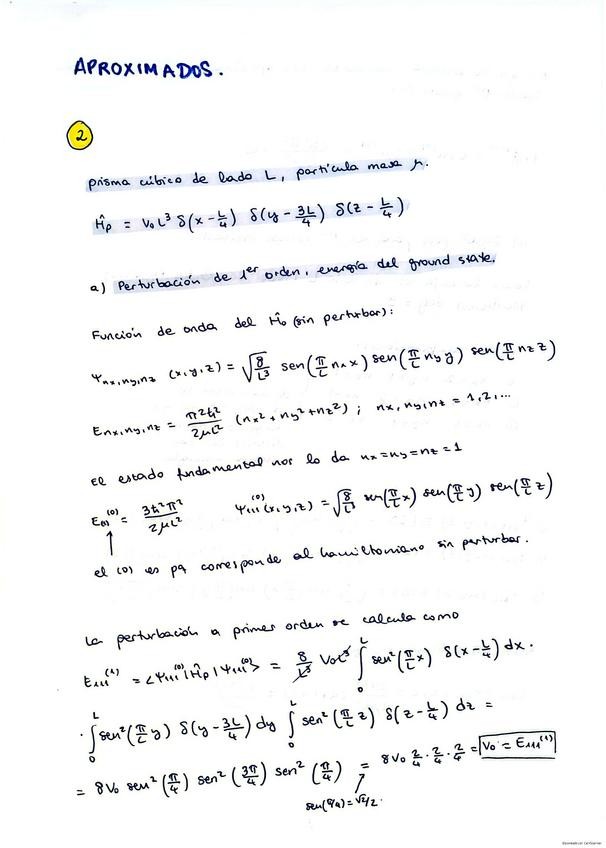 APROXIMADOS.
2
prisma cúbico de lado L, partícula masa μ.
Ĥp = V₀L³ δ(x-L/4) δ(y-3L/4) δ(z-L/4)
a) Perturbación de 1er orden, energía del ground state.
Función de onda del Ĥ₀ (sin perturbar):
Ψnx,ny,nz (x,y,z) = √(8/L³) sen(π/L nx x) sen(π/L ny y) sen(π/L nz z)
Enx,ny,nz = π²ħ²/2μL² (nx² + ny² + nz²) ; nx, ny, nz = 1,2,...
El estado fundamental nos lo da nx=ny=nz=1
E₁₁₁⁽⁰⁾ = 3ħ²π²/2μL² Ψ₁₁₁⁽⁰⁾(x,y,z) = √(8/L³) sen(π/L x) sen(π/L y) sen(π/L z)
el (0) es pq corresponde al hamiltoniano sin perturbar.
La perturbación a primer orden se calcula como
E₁₁₁⁽¹⁾ = <Ψ₁₁₁⁽⁰⁾|Ĥp|Ψ₁₁₁⁽⁰⁾> = 8/L³ V₀L³ ∫₀ᴸ sen²(π/L x) δ(x-L/4) dx ·
· ∫₀ᴸ sen²(π/L y) δ(y-3L/4) dy ∫₀ᴸ sen²(π/L z) δ(z-L/4) dz =
= 8V₀ sen²(π/4) sen²(3π/4) sen²(π/4) = 8V₀ 2/4 · 2/4 · 2/4 = V₀ = E₁₁₁⁽¹⁾
sen(π/4) = √2/2.
Escaneado con CamScanner